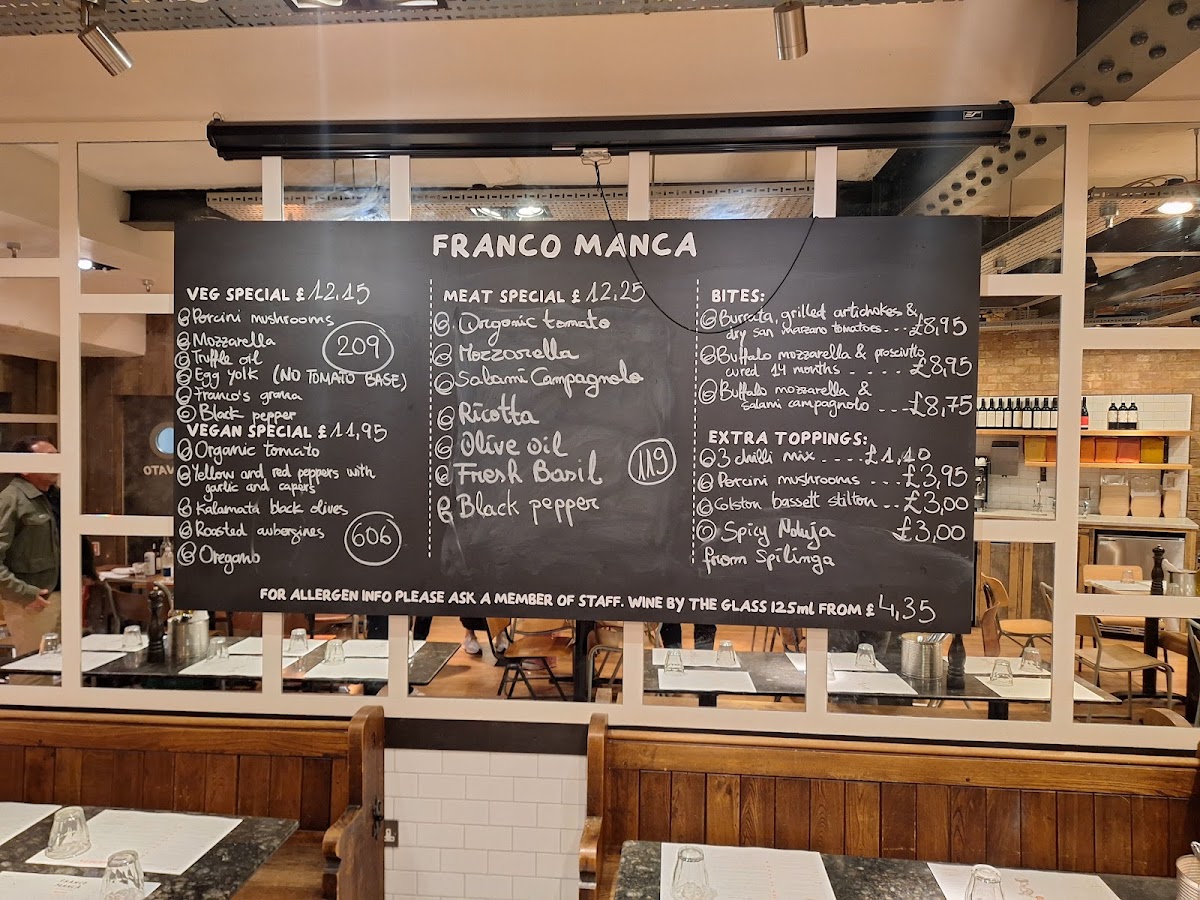 FRANCO MANCA
VEG SPECIAL £12,15
Porcini mushrooms
Mozzarella
Truffle oil
Egg yolk (NO TOMATO BASE)
Franco's grana
Black pepper
209
VEGAN SPECIAL £11,95
Organic tomato
Yellow and red peppers with
garlic and capers
Kalamata black olives
Roasted aubergines
Oregano
606
MEAT SPECIAL £12,25
Organic tomato
Mozzarella
Salami Campagnolo
Ricotta
Olive oil
Fresh Basil
Black pepper
119
BITES:
Burrata, grilled artichokes &
dry san marzano tomatoes---£8,95
Buffalo mozzarella & prosciutto
cured 14 months - ----- £8,95
Buffalo mozzarella &
salami campagnolo ---£8,75
EXTRA TOPPINGS:
3 chilli mix ----£1,10
Porcini mushrooms ---£3,95
Colston bassett stilton --£3,00
Spicy Nduja £3,00
from Spilinga
FOR ALLERGEN INFO PLEASE ASK A MEMBER OF STAFF. WINE BY THE GLASS 125ml FROM £4,35
FRANCO
MANCA